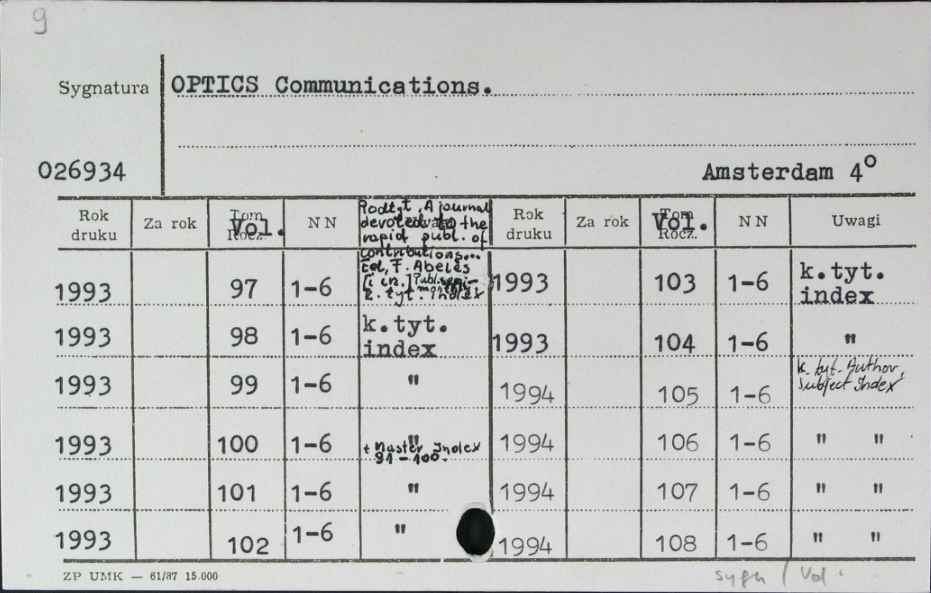 9
Sygnatura OPTICS Communications.
026934 Amsterdam 4°
Rok druku Za rok Tom Vol. Rocz. NN Podtyt. A journal devoted to the rapid publ. of contributions... Rok druku Za rok Tom Vol. Rocz. NN Uwagi
1993 97 1-6 Ed. F. Abelès [i in.] Publ. k. tyt. index 1993 103 1-6 k.tyt. index
1993 98 1-6 k.tyt. index 1993 104 1-6 "
1993 99 1-6 " 1994 105 1-6 k. tyt. Author, Subject Index
1993 100 1-6 " + Master Index 91-100. 1994 106 1-6 " "
1993 101 1-6 " 1994 107 1-6 " "
1993 102 1-6 " 1994 108 1-6 " "
ZP UMK — 61/87 15.000
sygn / Vol.